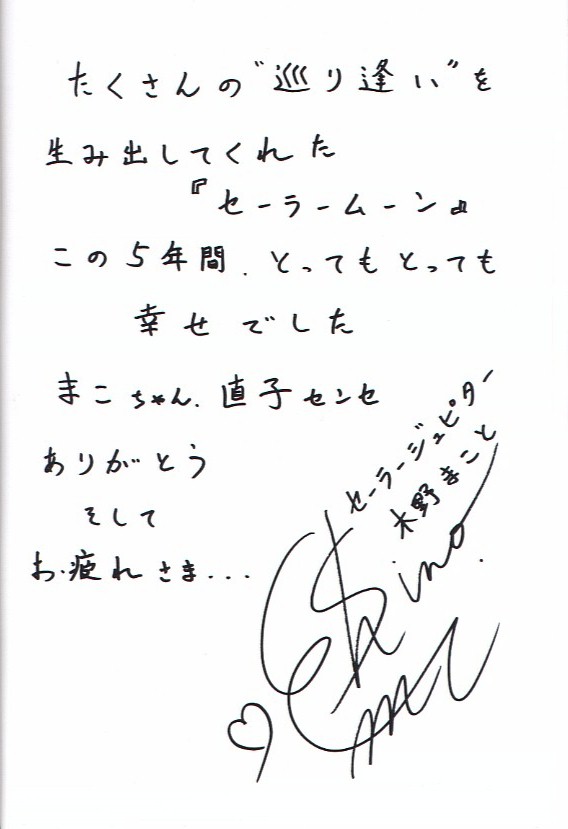 たくさんの"巡り逢い"を
生み出してくれた
『セーラームーン』
この5年間、とってもとっても
幸せでした
まこちゃん、直子センセ
ありがとう
そして
お疲れさま...
セーラージュピター
木野まこと